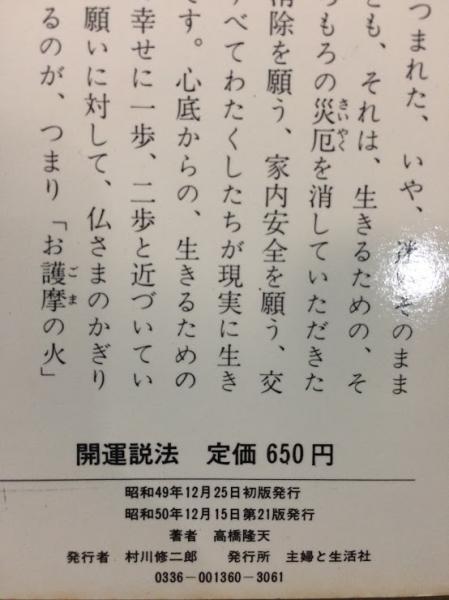 つまれた、いや、そのまま
も、それは、生きるための、そ
もろの災厄を消していただきた
消除を願う、家内安全を願う、交
べてわたくしたちが現実に生き
です。心底からの、生きるための
幸せに一歩、二歩と近づいてい
願いに対して、仏さまのかぎり
るのが、つまり「お護摩の火」
開運説法 定価650円
昭和49年12月25日初版発行
昭和50年12月15日第21版発行
著者 高橋隆天
発行者 村川修二郎 発行所 主婦と生活社
0336-001360-3061